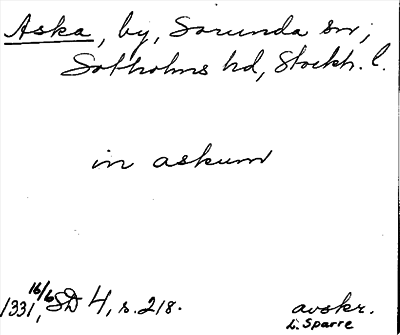 Aska, by, Sorunda sn,
Sotholms hd, Stockh. l.
in askum
1331, 16/6 SD 4, s. 218. avskr.
L. Sparre